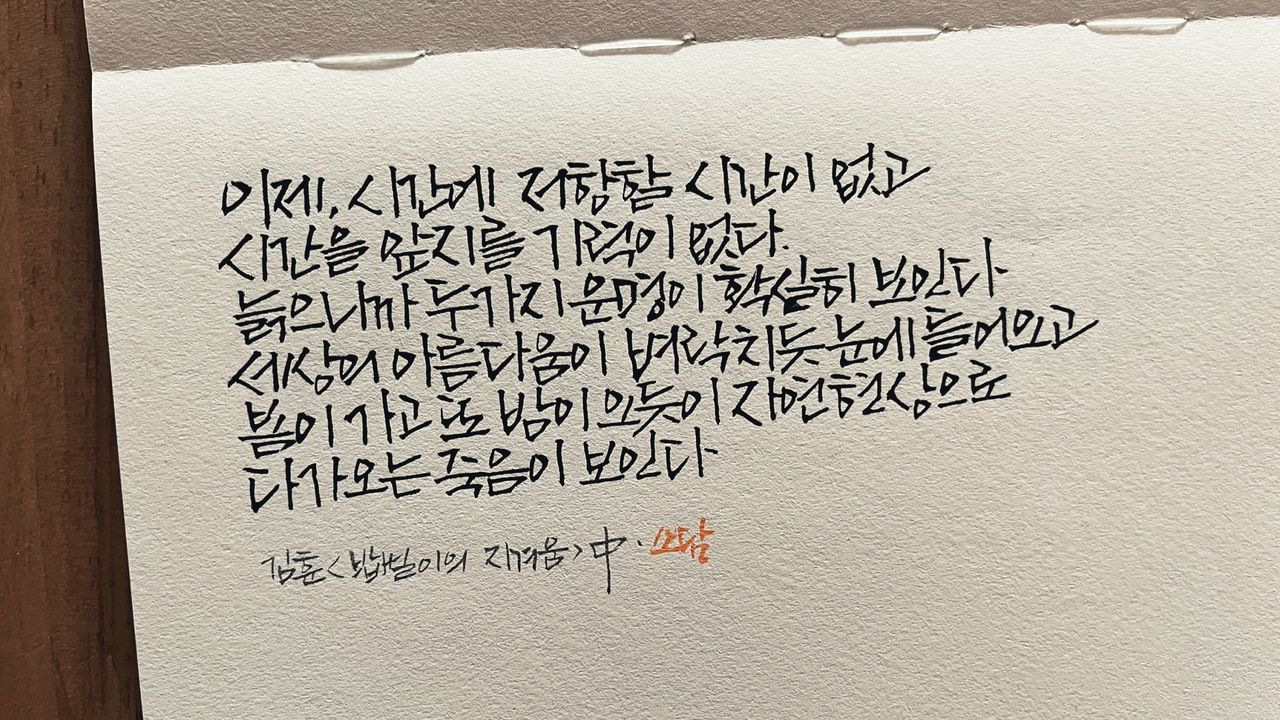 이제, 시간에 저항할 시간이 없고
시간을 앞지를 기력이 없다.
늙으니까 두가지 운명이 확실히 보인다
세상의 아름다움이 벼락치듯 눈에 들어오고
봄이 가고 또 밤이 오듯이 자연현상으로
다가오는 죽음이 보인다
김훈 <밥벌이의 지겨움> 中. 소담